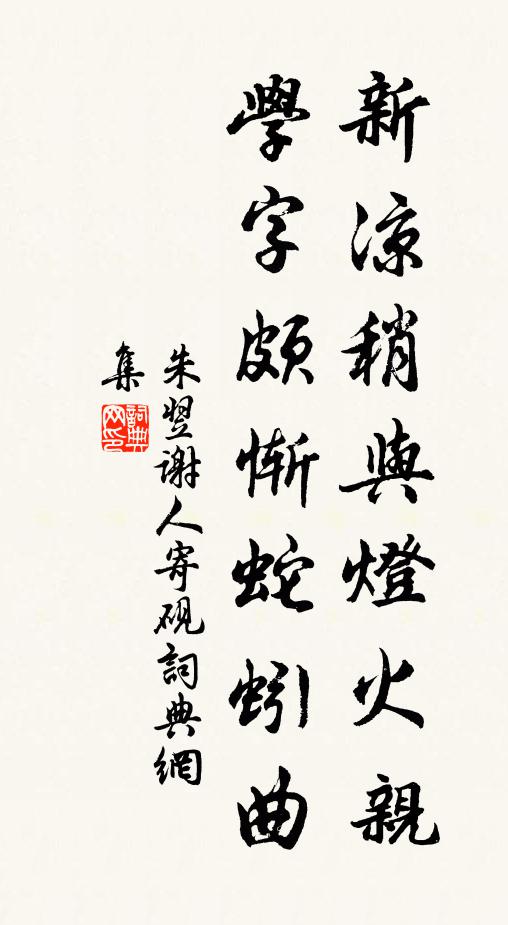 新涼稍與燈火親
學字頗慚蛇蚓曲
朱翌謝人寄硯詞典網
集
詞典
网印